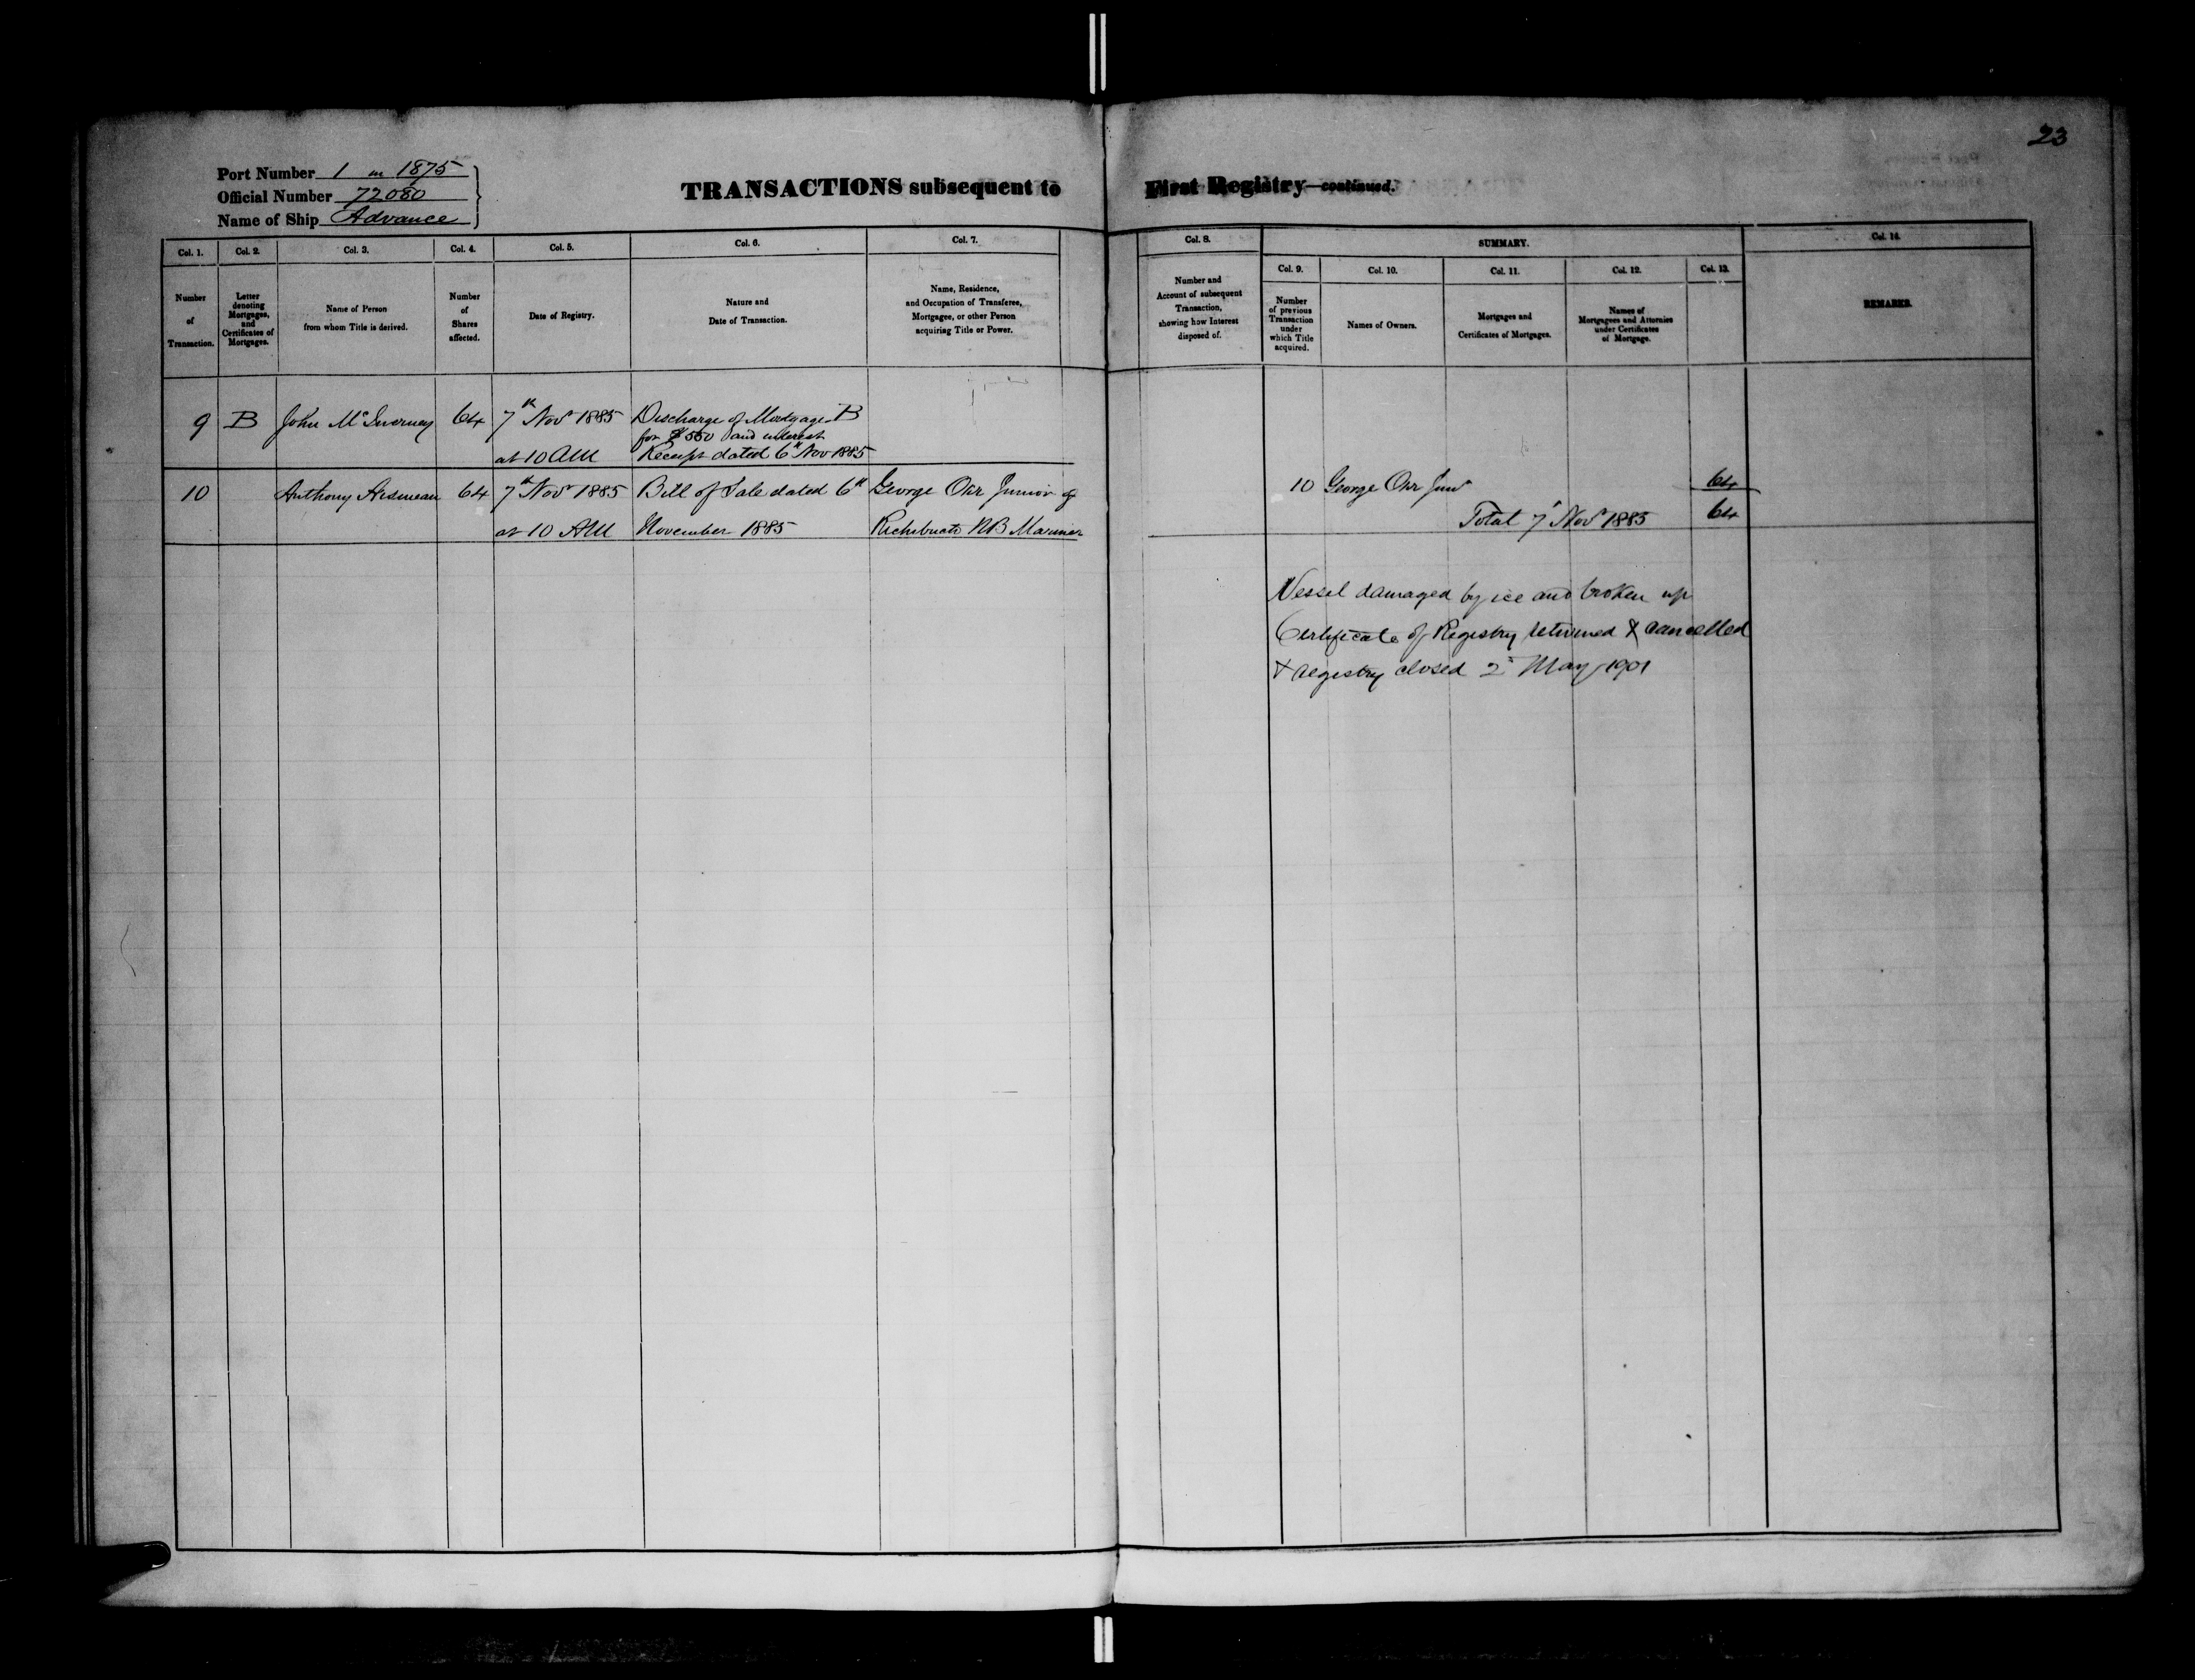 23
Port Number 1 in 1875
Official Number 72080
Name of Ship Advance
TRANSACTIONS subsequent to First Registry—continued.
Col. 1. Col. 2. Col. 3. Col. 4. Col. 5. Col. 6. Col. 7. Col. 8. SUMMARY. Col. 14.
Col. 9. Col. 10. Col. 11. Col. 12. Col. 13.
Number
of
Transaction.
Letter
denoting
Mortgages,
and
Certificates of
Mortgages.
Name of Person
from whom Title is derived.
Number
of
Shares
affected.
Date of Registry.
Nature and
Date of Transaction.
Name, Residence,
and Occupation of Transferee,
Mortgagee, or other Person
acquiring Title or Power.
Number and
Account of subsequent
Transaction,
showing how Interest
disposed of.
Number
of previous
Transaction
under
which Title
acquired.
Names of Owners.
Mortgages and
Certificates of Mortgages.
Names of
Mortgagees and Attornies
under Certificates
of Mortgage.
REMARKS.
9 B John McInerney 64 7th Nov 1885 Discharge of Mortgage B
for $550 and interest
at 10 AM Receipt dated 6th Nov 1885
10 Anthony 64 7th Nov 1885 Bill of Sale dated 6th George Ohr Junior of
at 10 AM November 1885 Richibucto NB Mariner
10 George Ohr Junr 64
Total 7th Nov 1885 64
Vessel damaged by ice and broken up
Certificate of Registry returned & cancelled
& registry closed 2d May 1901